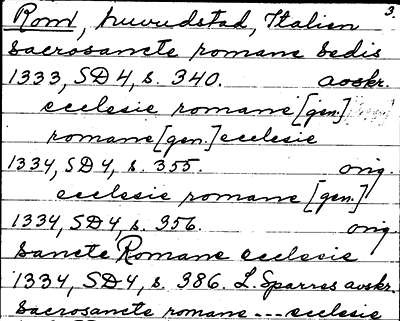 3.
Rom, huvudstad, Italien
Sacrosancte romane sedis
1333, SD 4, s. 340. avskr.
ecclesie romane [gen.]
romane [gen.] ecclesie
1334, SD 4, s. 355. orig.
ecclesie romane [gen.]
1334, SD 4, s. 356. orig.
Sancte Romane ecclesie
1334, SD 4, s. 386. L. Sparres avskr.
Sacrosancte romane --- ecclesie